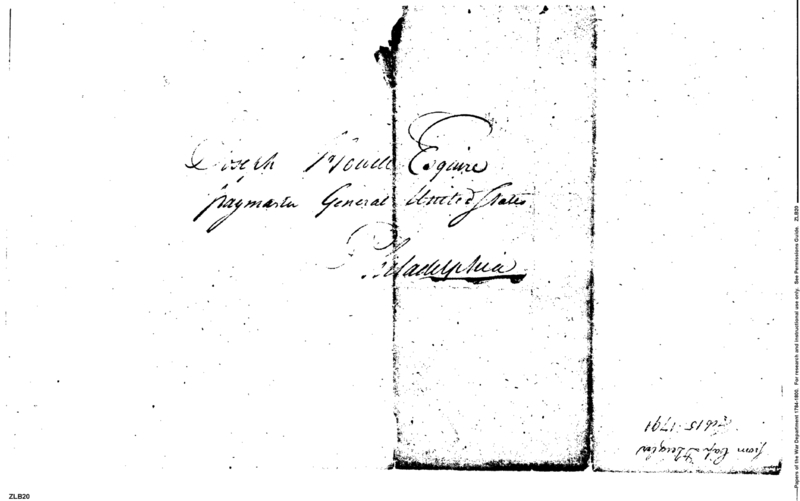 Joseph Howell Esquire
paymaster General United States
Philadelphia
from Cap.
Feb 15. 1791
ZLB20
Papers of the War Department 1784-1800. For research and instructional use only. See Permissions Guide. ZLB20